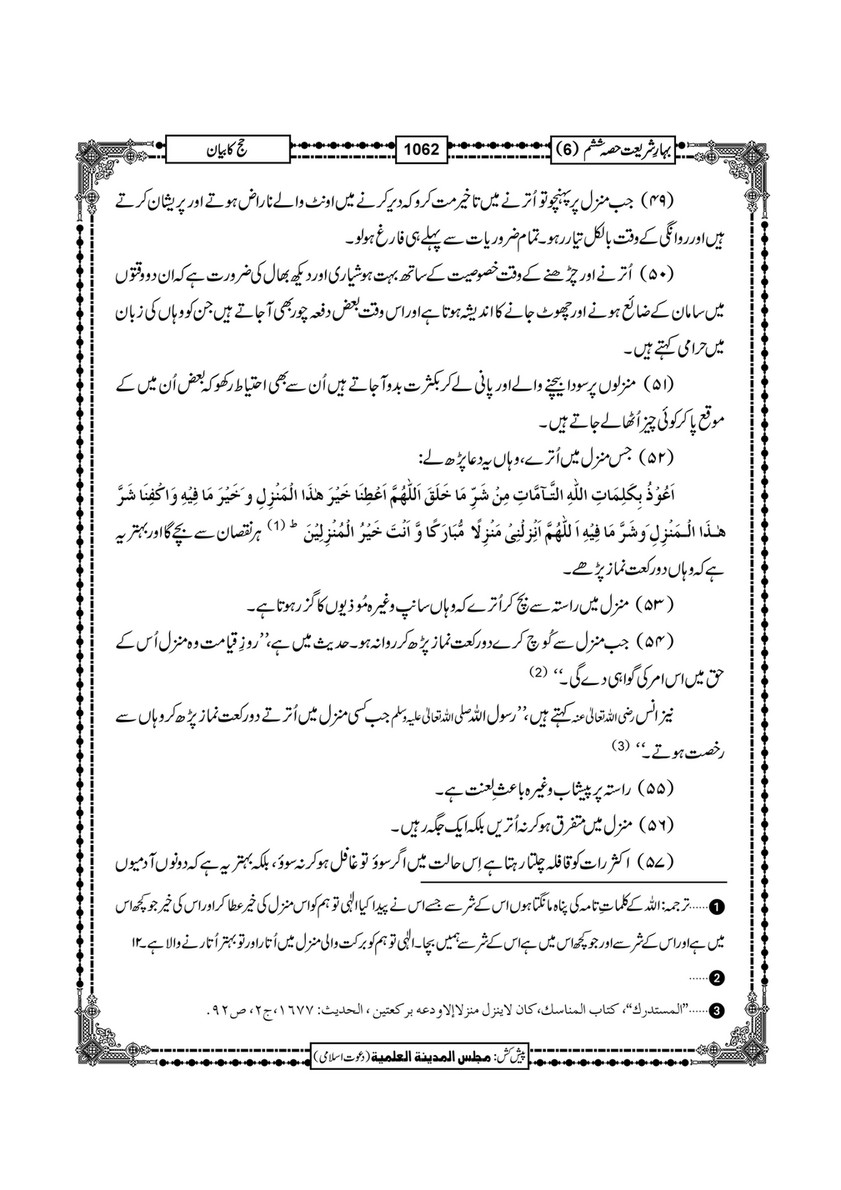 بہارِ شریعت حصہ ششم (6)
1062
حج کا بیان
(۴۹) جب منزل پر پہنچو تو اُترنے میں تاخیر مت کرو کہ دیر کرنے میں اونٹ والے ناراض ہوتے اور پریشان کرتے
ہیں اور روانگی کے وقت بالکل تیار رہو۔ تمام ضروریات سے پہلے ہی فارغ ہولو۔
(۵۰) اُترنے اور چڑھنے کے وقت خصوصیت کے ساتھ بہت ہوشیاری اور دیکھ بھال کی ضرورت ہے کہ ان دو وقتوں
میں سامان کے ضائع ہونے اور چھوٹ جانے کا اندیشہ ہوتا ہے اور اس وقت بعض دفعہ چور بھی آجاتے ہیں جن کو وہاں کی زبان
میں حرامی کہتے ہیں۔
(۵۱) منزلوں پر سودا بیچنے والے اور پانی لے کر بکثرت بدو آجاتے ہیں اُن سے بھی احتیاط رکھو کہ بعض اُن میں کے
موقع پا کر کوئی چیز اُٹھالے جاتے ہیں۔
(۵۲) جس منزل میں اُترے، وہاں یہ دعا پڑھ لے:
اَعُوْذُ بِكَلِمَاتِ اللّٰهِ التَّآمَّاتِ مِنْ شَرِّ مَا خَلَقَ اَللّٰهُمَّ اَعْطِنَا خَيْرَ هٰذَا الْمَنْزِلِ وَ خَيْرَ مَا فِيْهِ وَاكْفِنَا شَرَّ
هٰذَا الْمَنْزِلِ وَشَرَّ مَا فِيْهِ اَللّٰهُمَّ اَنْزِلْنِيْ مَنْزِلًا مُّبَارَكًا وَّ اَنْتَ خَيْرُ الْمُنْزِلِيْنَ ط (1) ہر نقصان سے بچے گا اور بہتر یہ
ہے کہ وہاں دو رکعت نماز پڑھے۔
(۵۳) منزل میں راستہ سے بچ کر اُترے کہ وہاں سانپ وغیرہ مُوذیوں کا گزر ہوتا ہے۔
(۵۴) جب منزل سے کُوچ کرے دو رکعت نماز پڑھ کر روانہ ہو۔ حدیث میں ہے، ’’روزِ قیامت وہ منزل اُس کے
حق میں اس امر کی گواہی دے گی۔‘‘ (2)
نیز انس رضی اللہ تعالیٰ عنہ کہتے ہیں، ’’رسول اللہ صلی اللہ تعالیٰ علیہ وسلم جب کسی منزل میں اُترتے دو رکعت نماز پڑھ کر وہاں سے
رخصت ہوتے۔‘‘ (3)
(۵۵) راستہ پر پیشاب وغیرہ باعثِ لعنت ہے۔
(۵۶) منزل میں متفرق ہو کر نہ اُتریں بلکہ ایک جگہ رہیں۔
(۵۷) اکثر رات کو قافلہ چلتا رہتا ہے اِس حالت میں اگر سوؤ تو غافل ہو کر نہ سوؤ، بلکہ بہتر یہ ہے کہ دونوں آدمیوں
1 ......ترجمہ: اللہ کے کلماتِ تامہ کی پناہ مانگتا ہوں اس کے شر سے جسے اس نے پیدا کیا الٰہی تو ہم کو اس منزل کی خیر عطا کر اور اس کی خیر جو کچھ اس
میں ہے اور اس کے شر سے اور جو کچھ اس میں ہے اس کے شر سے ہمیں بچا۔ الٰہی تو ہم کو برکت والی منزل میں اُتار اور تو بہتر اُتارنے والا ہے۔ ۱۲
2 ......
3 ......’’المستدرك‘‘، كتاب المناسك، كان لاينزل منزلا إلا ودعه بركعتين ، الحديث: ۱۶۷۷، ج۲، ص۹۲.
پیش کش: مجلس المدینۃ العلمیۃ (دعوتِ اسلامی)